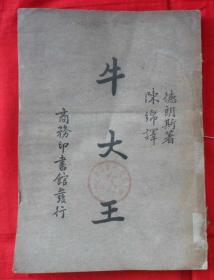 德朗斯著
陳綿譯
牛大王
商務印書館發行